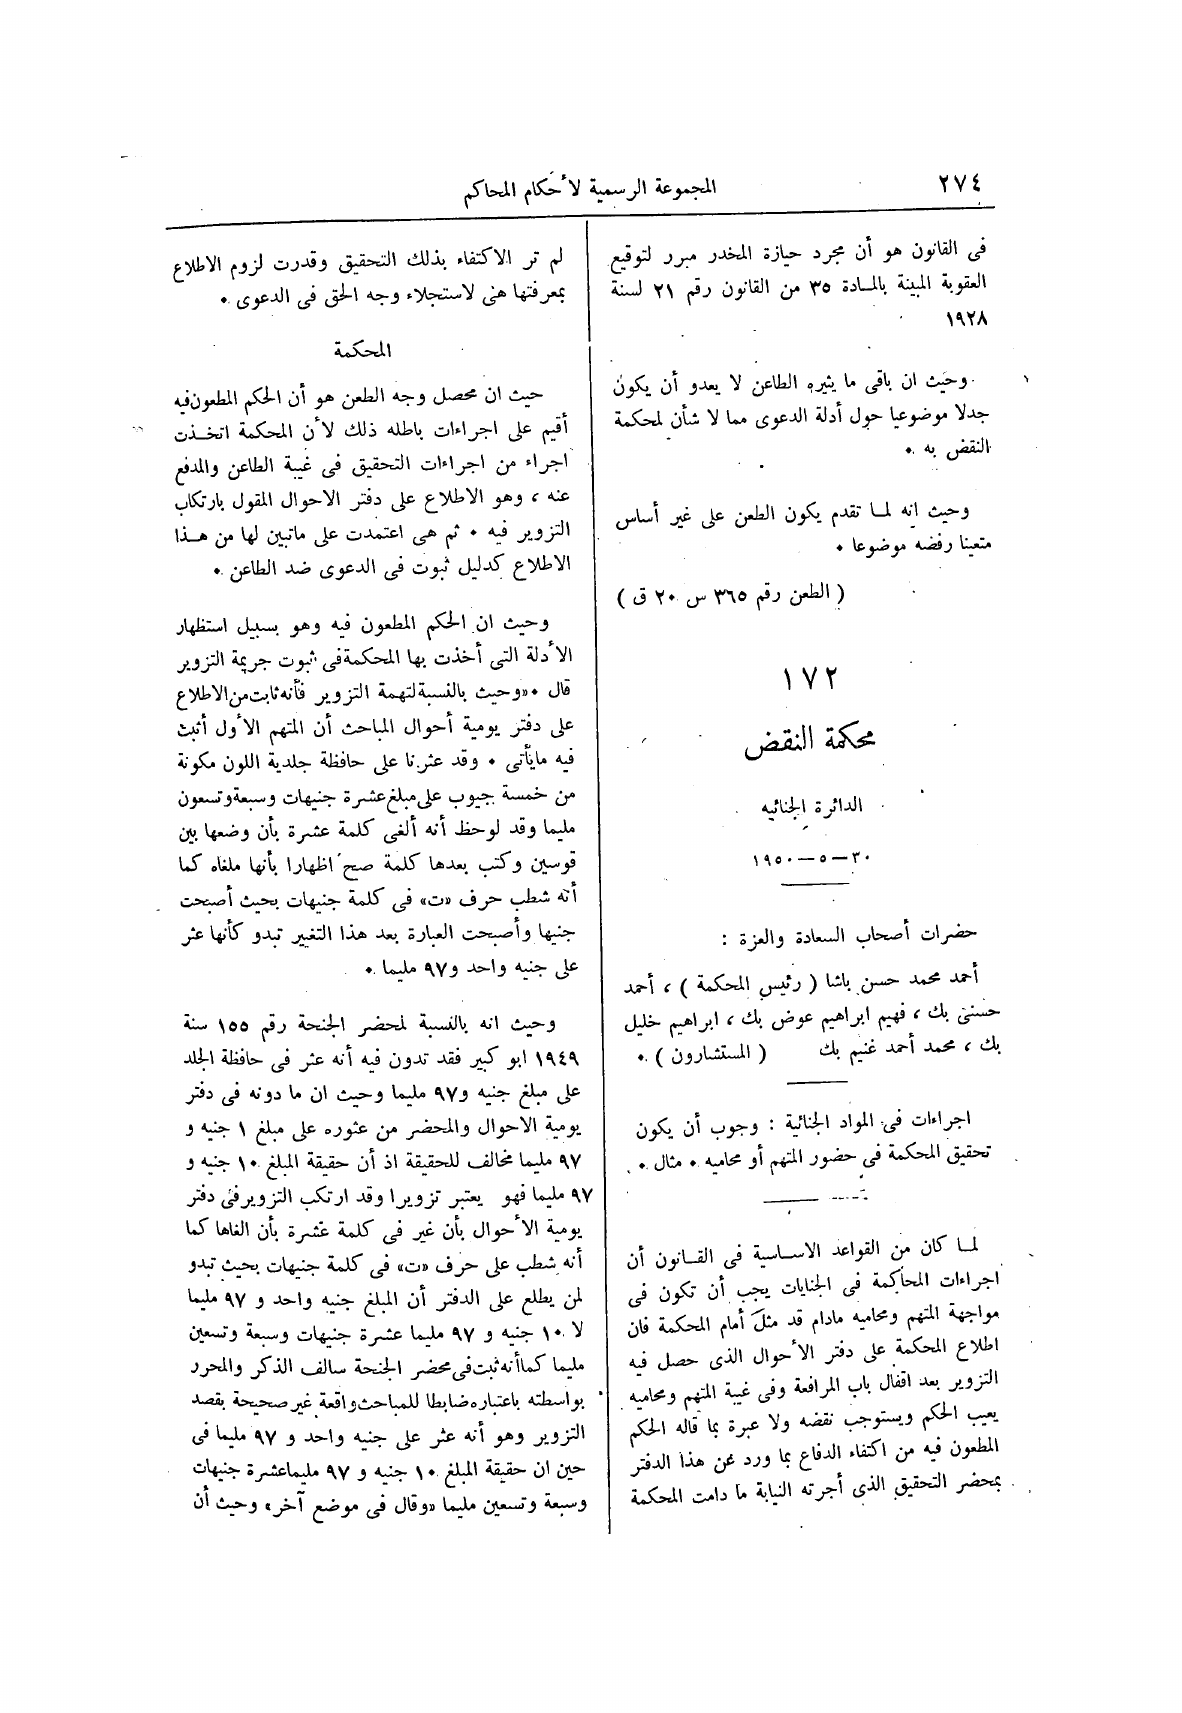 ٢٧٤
المجموعة الرسمية لأحكام المحاكم
فى القانون هو أن مجرد حيازة المخدر مبرر لتوقيع
العقوبة المبينة بالمادة ٣٥ من القانون رقم ٢١ لسنة
١٩٢٨
وحيث ان باقى ما يثيره الطاعن لا يعدو أن يكون
جدلا موضوعيا حول أدلة الدعوى مما لا شأن لمحكمة
النقض به ٠
وحيث انه لما تقدم يكون الطعن على غير أساس
متعينا رفضه موضوعا ٠
( الطعن رقم ٣٦٥ س ٢٠ ق )
١٧٢
محكمة النقض
الدائرة الجنائيه
٣٠ — ٥ — ١٩٥٠
حضرات أصحاب السعادة والعزة :
أحمد محمد حسن باشا ( رئيس المحكمة ) ، أحمد
حسنى بك ، فهيم ابراهيم عوض بك ، ابراهيم خليل
بك ، محمد أحمد غنيم بك ( المستشارون ) ٠
اجراءات فى المواد الجنائية : وجوب أن يكون
تحقيق المحكمة فى حضور المتهم أو محاميه ٠ مثال ٠
لما كان من القواعد الاساسية فى القانون أن
اجراءات المحاكمة فى الجنايات يجب أن تكون فى
مواجهة المتهم ومحاميه مادام قد مثل أمام المحكمة فان
اطلاع المحكمة على دفتر الأحوال الذى حصل فيه
التزوير بعد اقفال باب المرافعة وفى غيبة المتهم ومحاميه
يعيب الحكم ويستوجب نقضه ولا عبرة بما قاله الحكم
المطعون فيه من اكتفاء الدفاع بما ورد عن هذا الدفتر
بمحضر التحقيق الذى أجرته النيابة ما دامت المحكمة
لم تر الاكتفاء بذلك التحقيق وقدرت لزوم الاطلاع
بمعرفتها هى لاستجلاء وجه الحق فى الدعوى ٠
المحكمة
حيث ان محصل وجه الطعن هو أن الحكم المطعون فيه
أقيم على اجراءات باطله ذلك لأن المحكمة اتخذت
اجراء من اجراءات التحقيق فى غيبة الطاعن والمدفع
عنه ، وهو الاطلاع على دفتر الاحوال المقول بارتكاب
التزوير فيه ٠ ثم هى اعتمدت على ماتبين لها من هذا
الاطلاع كدليل ثبوت فى الدعوى ضد الطاعن ٠
وحيث ان الحكم المطعون فيه وهو بسبيل استظهار
الأدلة التى أخذت بها المحكمة فى ثبوت جريمة التزوير
قال ٠ «وحيث بالنسبة لتهمة التزوير فأنه ثابت من الاطلاع
على دفتر يومية أحوال المباحث أن المتهم الأول أثبت
فيه مايأتى ٠ وقد عثرنا على حافظة جلدية اللون مكونة
من خمسة جيوب على مبلغ عشرة جنيهات وسبعة وتسعون
مليما وقد لوحظ أنه ألغى كلمة عشرة بأن وضعها بين
قوسين وكتب بعدها كلمة صح اظهارا بأنها ملغاه كما
أنه شطب حرف «ت» فى كلمة جنيهات بحيث أصبحت
جنيها وأصبحت العبارة بعد هذا التغيير تبدو كأنها عثر
على جنيه واحد و٩٧ مليما ٠
وحيث انه بالنسبة لمحضر الجنحة رقم ١٥٥ سنة
١٩٤٩ ابو كبير فقد تدون فيه أنه عثر فى حافظة الجلد
على مبلغ جنيه و٩٧ مليما وحيث ان ما دونه فى دفتر
يومية الاحوال والمحضر من عثوره على مبلغ ١ جنيه و
٩٧ مليما مخالف للحقيقة اذ أن حقيقة المبلغ ١٠ جنيه و
٩٧ مليما فهو يعتبر تزويرا وقد ارتكب التزوير فى دفتر
يومية الأحوال بأن غير فى كلمة عشرة بأن الغاها كما
أنه شطب على حرف «ت» فى كلمة جنيهات بحيث تبدو
لمن يطلع على الدفتر أن المبلغ جنيه واحد و ٩٧ مليما
لا ١٠ جنيه و ٩٧ مليما عشرة جنيهات وسبعة وتسعين
مليما كما أنه ثبت فى محضر الجنحة سالف الذكر والمحرر
بواسطته باعتباره ضابطا للمباحث واقعة غير صحيحة بقصد
التزوير وهو أنه عثر على جنيه واحد و ٩٧ مليما فى
حين ان حقيقة المبلغ ١٠ جنيه و ٩٧ مليما عشرة جنيهات
وسبعة وتسعين مليما «وقال فى موضع آخر» وحيث أن